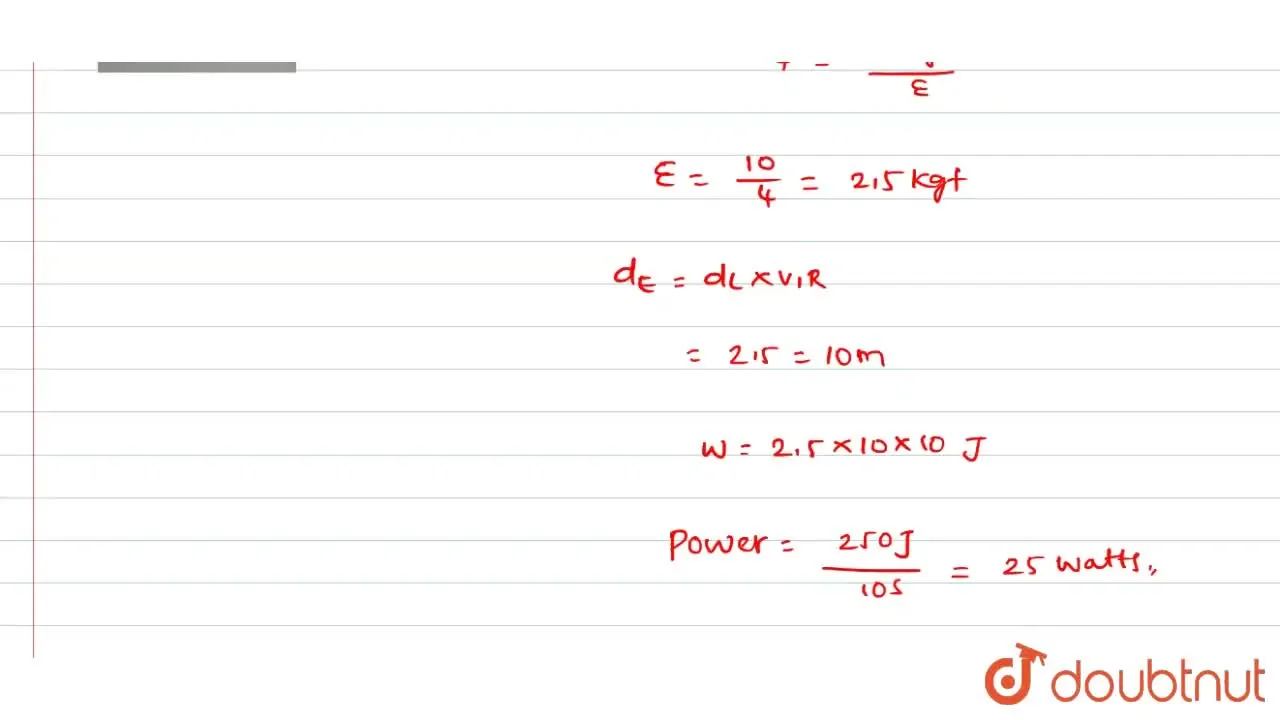 E
E = 10/4 = 2.5 kgf
dE = dL × V.R
= 2.5 = 10m
W = 2.5 × 10 × 10 J
Power = 250J/10s = 25 watts,,
doubtnut